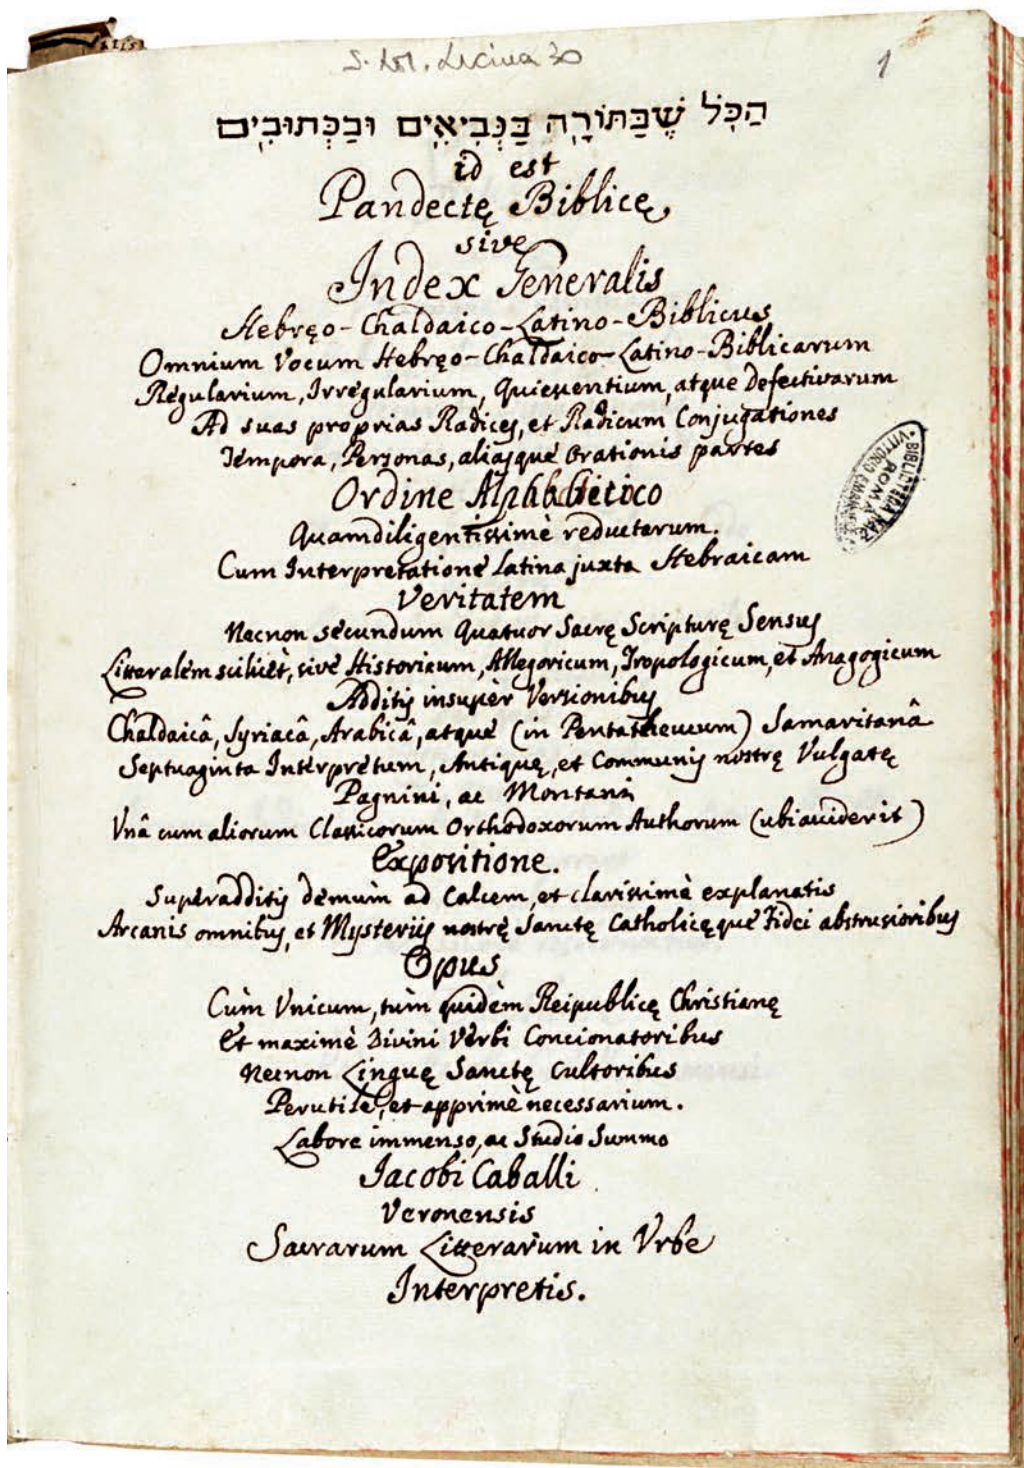 S. Lor. Lucina 30
1
הַכֹּל שֶׁבַּתּוֹרָה בַּנְּבִיאִים וּבַכְּתוּבִים
id est
Pandectę Biblicę,
sive
Index Generalis
Hebręo-Chaldaico-Latino-Biblicus
Omnium Vocum Hebręo-Chaldaico-Latino-Biblicarum
Regularium, Irregularium, Quiescentium, atque defectivarum
Ad suas proprias Radices, et Radicum Conjugationes
Tempora, Personas, aliasque Orationis partes
Ordine Alphabetico
Quamdiligentissimè reductarum.
Cum Interpretatione Latina juxta Hebraicam
Veritatem
Necnon secundum Quatuor Sacrę Scripturę Sensus
Litteralem scilicèt, sivè Historicum, Allegoricum, Tropologicum, et Anagogicum
Additis insupèr Versionibus
Chaldaicâ, Syriacâ, Arabicâ, atquè (in Pentatheucum) Samaritanâ
Septuaginta Interpretum, Antiquę, et Communis nostrę Vulgatę
Pagnini, ac Montani
Vnâ cum aliorum Classicorum Orthodoxorum Authorum (ubi acciderit)
Expositione.
Superadditis demùm ad Calcem, et clarissimè explanatis
Arcanis omnibus, et Mysteriis nostrę Sanctę Catholicęquè Fidei abstrusioribus
Opus
Cùm Vnicum, tùm quidèm Reipublicę Christianę
Et maximè Divini Vèrbi Concionatoribus
Necnon Linguę Sanctę Cultoribus
Perutile, et apprimè necessarium.
Labore immenso, ac Studio Summo
Jacobi Caballi
Veronensis
Sacrarum Litterarum in Vrbe
Interpretis.
BIBLIOTECA NAZ
ROMA
VITTORIO EMANUELE